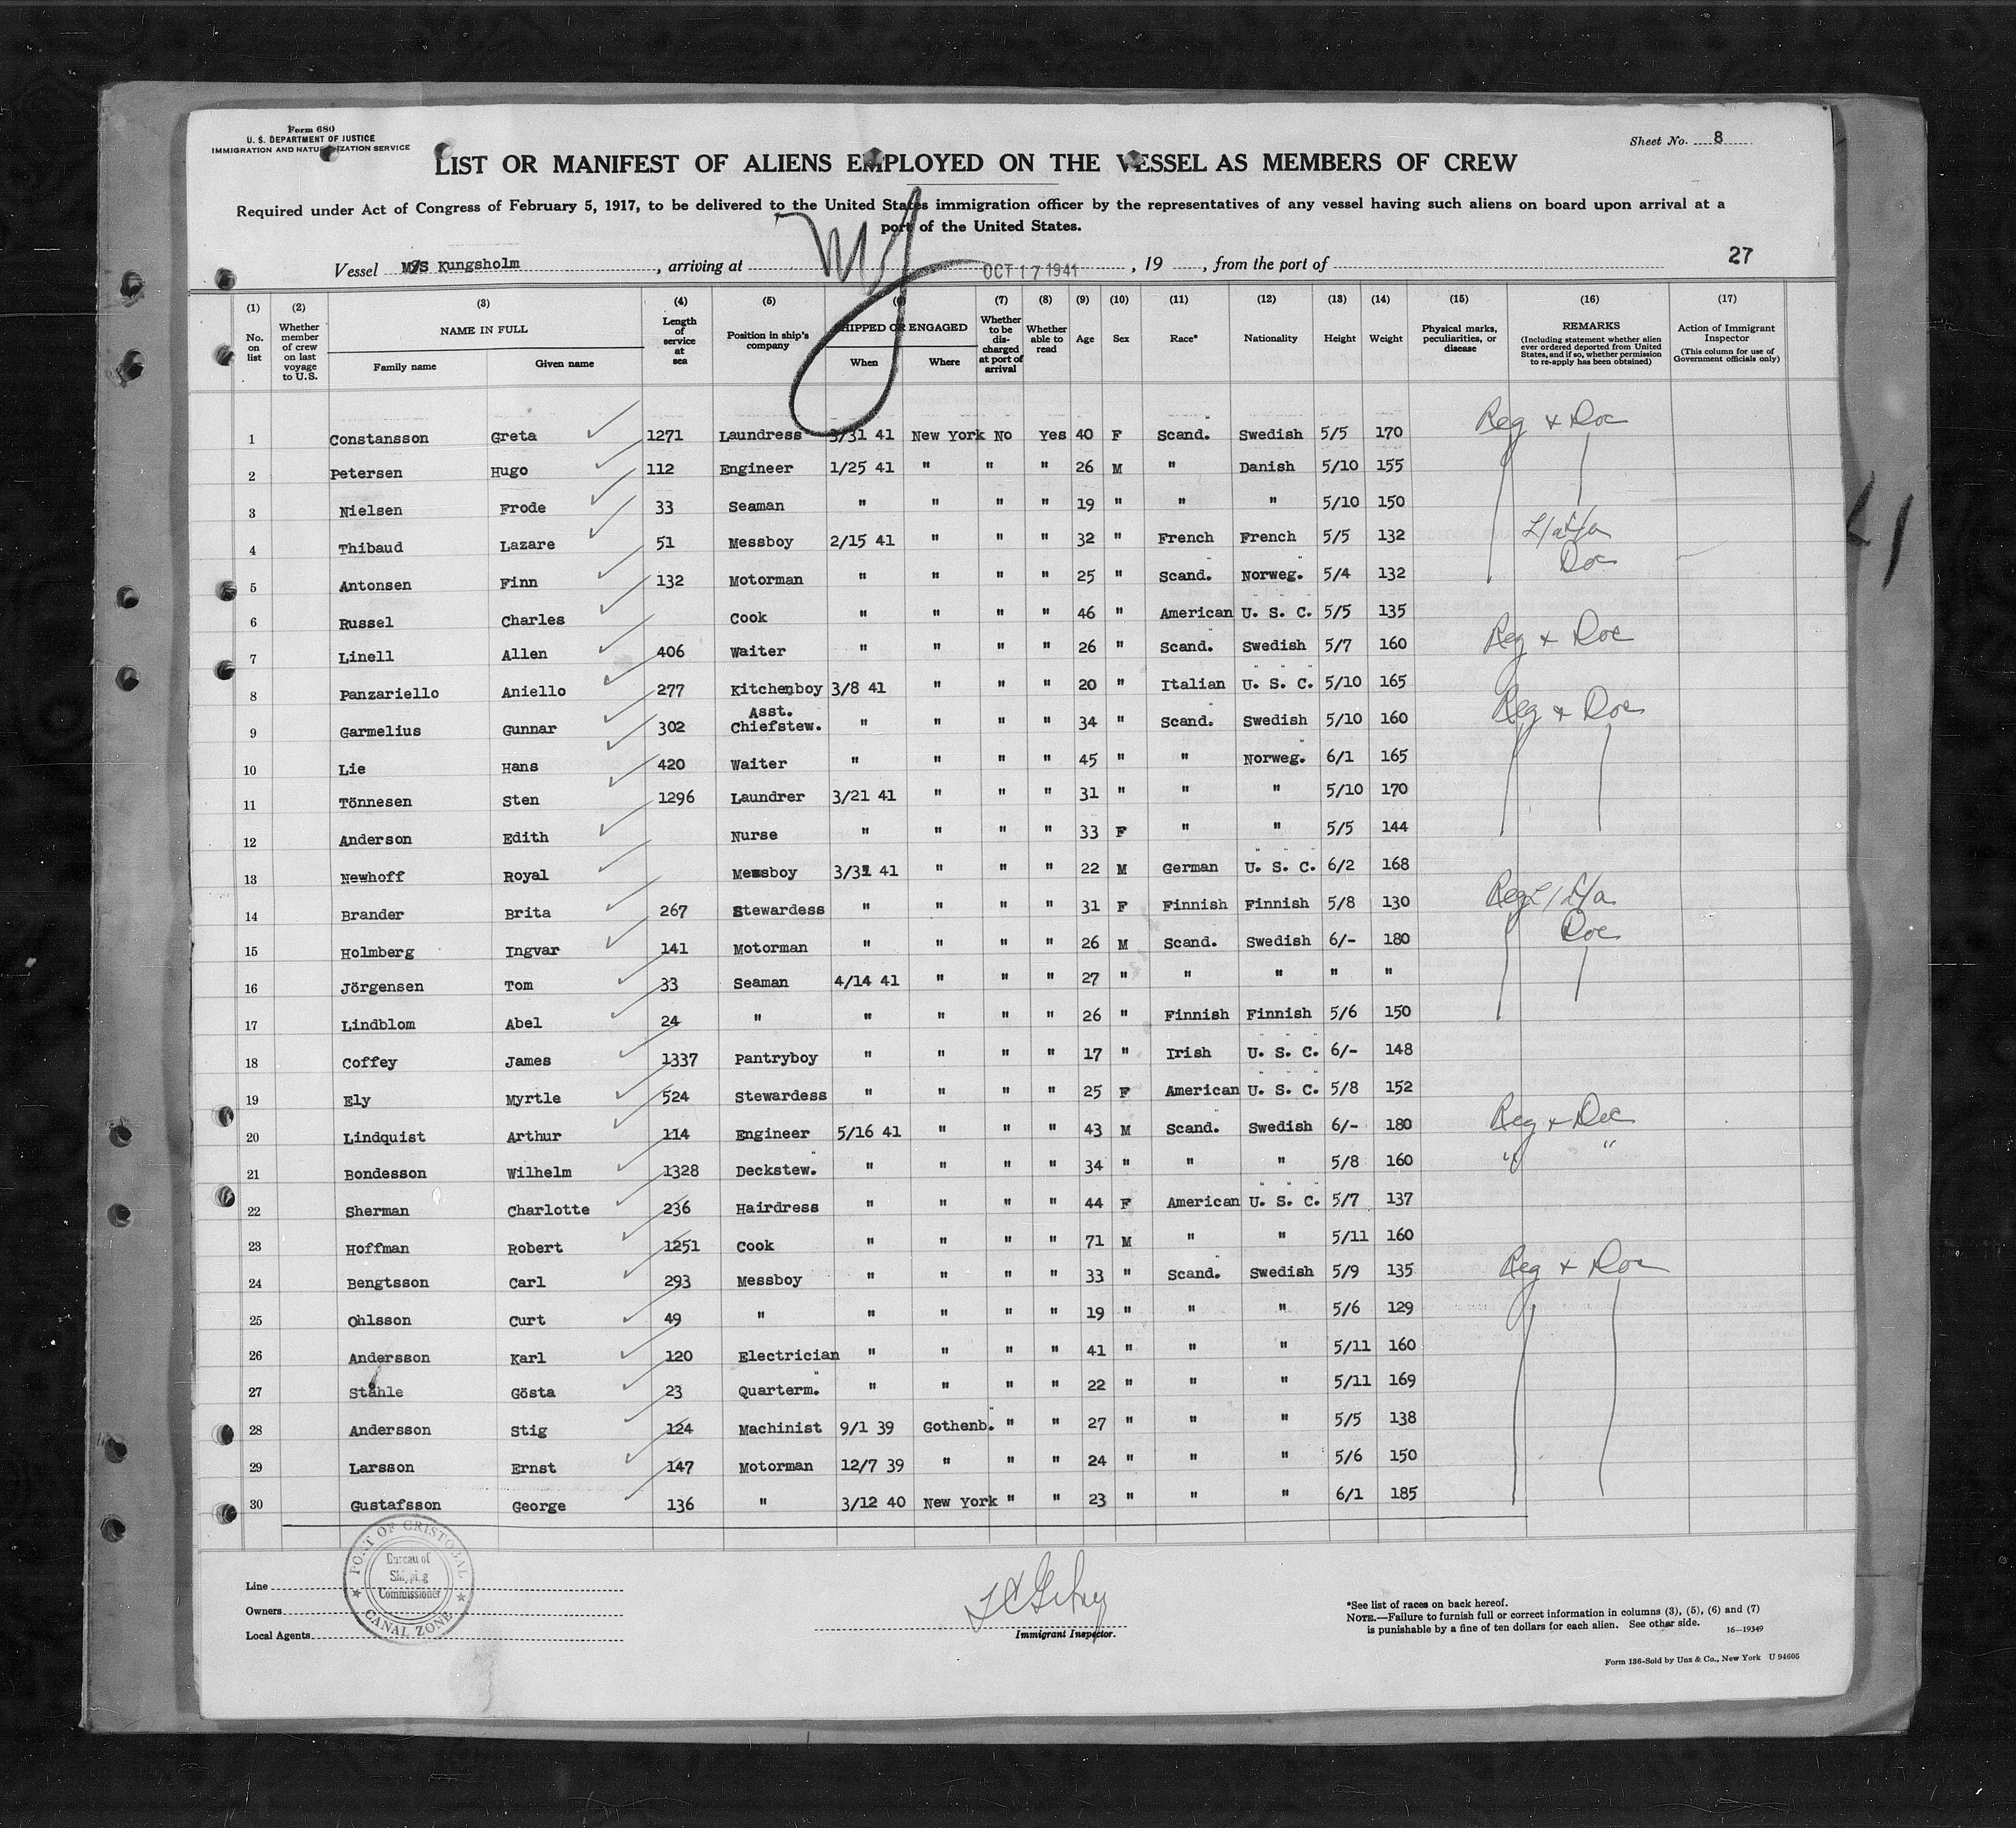 Form 680
U. S. DEPARTMENT OF JUSTICE
IMMIGRATION AND NATURALIZATION SERVICE
Sheet No. 8
LIST OR MANIFEST OF ALIENS EMPLOYED ON THE VESSEL AS MEMBERS OF CREW
Required under Act of Congress of February 5, 1917, to be delivered to the United States immigration officer by the representatives of any vessel having such aliens on board upon arrival at a
port of the United States.
Vessel M/S Kungsholm, arriving at OCT 17 1941, 19, from the port of 27
(1) (2) (3) (4) (5) (6) (7) (8) (9) (10) (11) (12) (13) (14) (15) (16) (17)
No. on list
Whether member of crew on last voyage to U.S.
NAME IN FULL
Family name Given name
Length of service at sea
Position in ship's company
SHIPPED OR ENGAGED
When Where
Whether to be discharged at port of arrival
Whether able to read
Age
Sex
Race*
Nationality
Height
Weight
Physical marks, peculiarities, or disease
REMARKS
(Including statement whether alien ever ordered deported from United States, and if so, whether permission to re-apply has been obtained)
Action of Immigrant Inspector
(This column for use of Government officials only)
1 Constansson Greta 1271 Laundress 3/31 41 New York No Yes 40 F Scand. Swedish 5/5 170 Reg & Doc
2 Petersen Hugo 112 Engineer 1/25 41 " " " 26 M " Danish 5/10 155
3 Nielsen Frode 33 Seaman " " " " 19 " " " 5/10 150
4 Thibaud Lazare 51 Messboy 2/15 41 " " " 32 " French French 5/5 132
5 Antonsen Finn 132 Motorman " " " " 25 " Scand. Norweg. 5/4 132 Doc
6 Russel Charles Cook " " " " 46 " American U. S. C. 5/5 135
7 Linell Allen 406 Waiter " " " " 26 " Scand. Swedish 5/7 160 Reg & Doc
8 Panzariello Aniello 277 Kitchenboy 3/8 41 " " " 20 " Italian U. S. C. 5/10 165
9 Garmelius Gunnar 302 Asst. Chiefstew. " " " " 34 " Scand. Swedish 5/10 160 Reg & Doc
10 Lie Hans 420 Waiter " " " " 45 " " Norweg. 6/1 165
11 Tönnesen Sten 1296 Laundrer 3/21 41 " " " 31 " " " 5/10 170
12 Anderson Edith Nurse " " " " 33 F " " 5/5 144
13 Newhoff Royal Messboy 3/31 41 " " " 22 M German U. S. C. 6/2 168
14 Brander Brita 267 Stewardess " " " " 31 F Finnish Finnish 5/8 130 Reg
15 Holmberg Ingvar 141 Motorman " " " " 26 M Scand. Swedish 6/- 180 Doc
16 Jörgensen Tom 33 Seaman 4/14 41 " " " 27 " " " " "
17 Lindblom Abel 24 " " " " " 26 " Finnish Finnish 5/6 150
18 Coffey James 1337 Pantryboy " " " " 17 " Irish U. S. C. 6/- 148
19 Ely Myrtle 524 Stewardess " " " " 25 F American U. S. C. 5/8 152
20 Lindquist Arthur 114 Engineer 5/16 41 " " " 43 M Scand. Swedish 6/- 180 Reg & Doc
21 Bondesson Wilhelm 1328 Deckstew. " " " " 34 " " " 5/8 160 " "
22 Sherman Charlotte 236 Hairdress " " " " 44 F American U. S. C. 5/7 137
23 Hoffman Robert 1251 Cook " " " " 71 M " " 5/11 160
24 Bengtsson Carl 293 Messboy " " " " 33 " Scand. Swedish 5/9 135 Reg & Doc
25 Ohlsson Curt 49 " " " " " 19 " " " 5/6 129
26 Andersson Karl 120 Electrician " " " " 41 " " " 5/11 160
27 Ståhle Gösta 23 Quarterm. " " " " 22 " " " 5/11 169
28 Andersson Stig 124 Machinist 9/1 39 Gothenb. " " 27 " " " 5/5 138
29 Larsson Ernst 147 Motorman 12/7 39 " " " 24 " " " 5/6 150
30 Gustafsson George 136 " 3/12 40 New York " " 23 " " " 6/1 185
PORT OF CRISTOBAL
Bureau of
Shipping
Commissioner
CANAL ZONE
Line
Owners
Local Agents
Immigrant Inspector.
*See list of races on back hereof.
NOTE.—Failure to furnish full or correct information in columns (3), (5), (6) and (7)
is punishable by a fine of ten dollars for each alien. See other side.
16—19349
Form 136-Sold by Unz & Co., New York U 94605